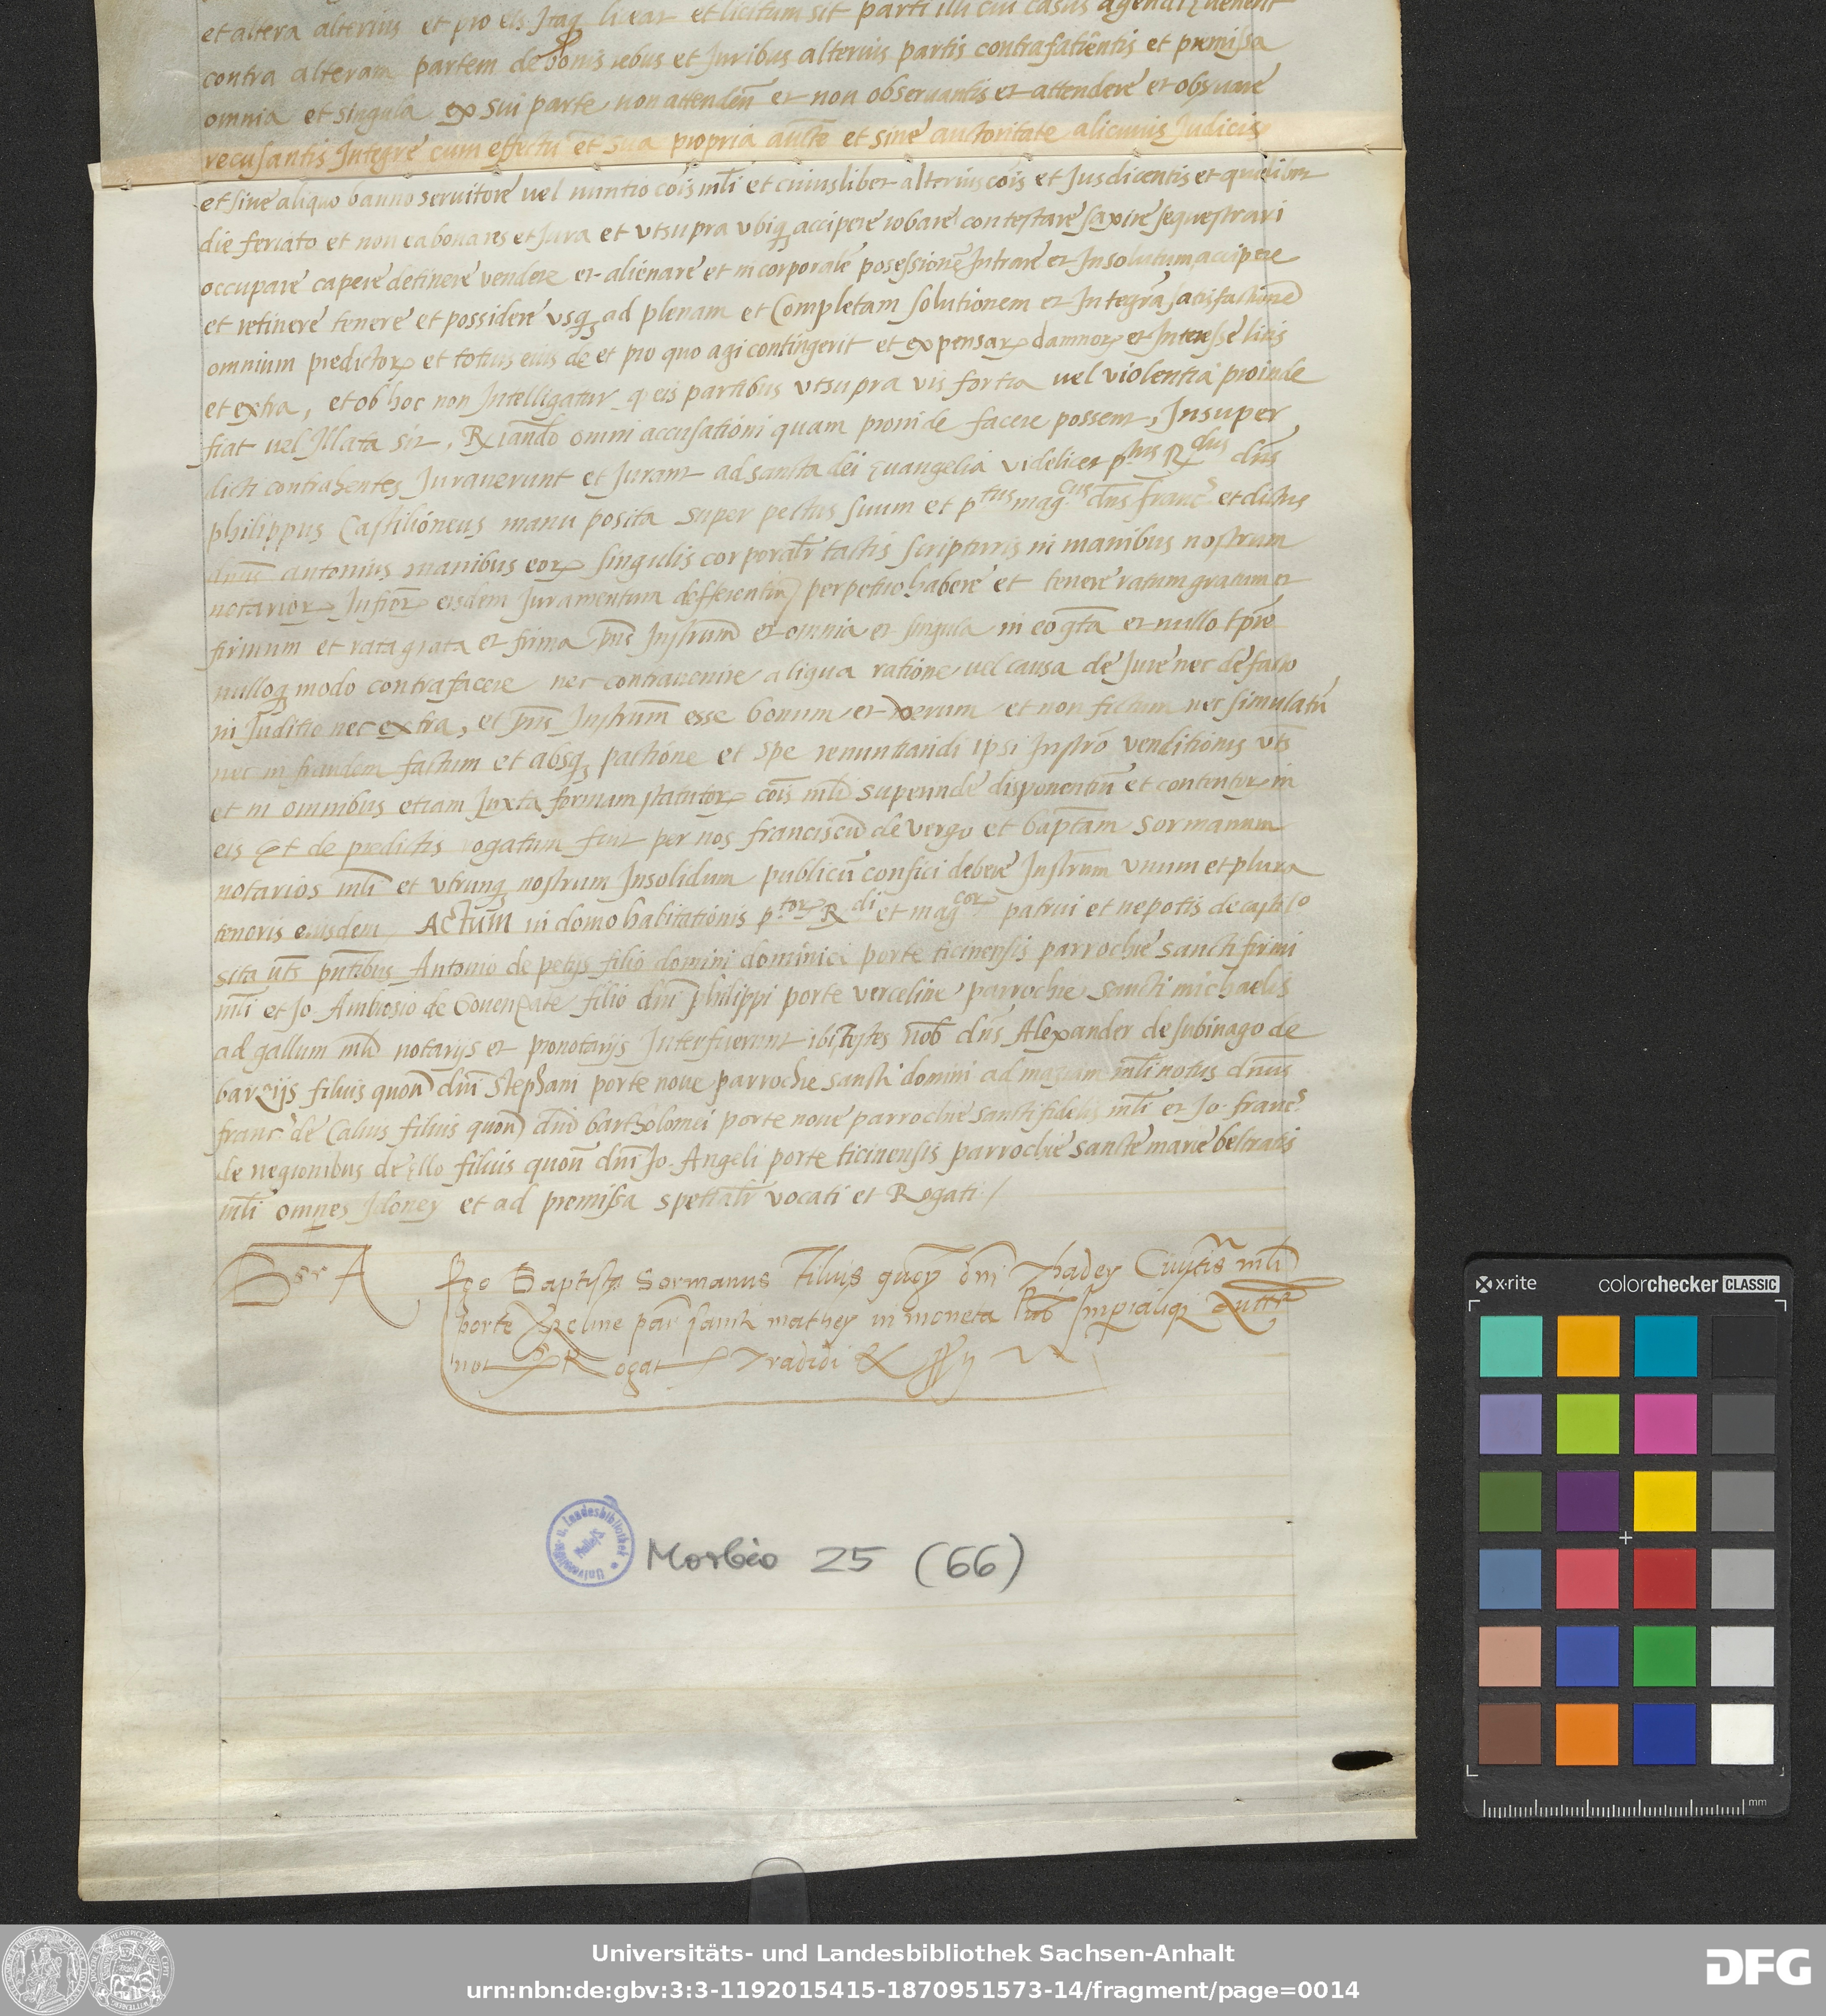 et altera alterius et pro eis Itaq liceat et licitum sit parti illi cui casus agendi ęvenerit
contra alteram partem de bonis rebus et Juribus alterius partis contrafatientis et premissa
omnia et singula ex sui parte non attendeñ et non observantis et attendere et observare
recusantis Integre cum effectu et sua propria aucte et sine auctoritate alicuius Judicis
et sine aliquo banno servitore vel nuntio cois mli et cuiuslibet alterius cois et Jusdicentis et quolibet
die feriato et non ea bona res et Jura et vtsupra vbiq accipere robare contestare saxire sequestrari
occupare capere detinere vendere et alienare et in corporale posessione Intrare et Insolutum accipere
et retinere tenere et possidere vsq ad plenam et Completam solutionem et Integra satisfactione
omnium predictor et totius eius de et pro quo agi contingerit et expensar damnor et Interesse litis
et extra, et ob hoc non Intelligatur q eis partibus vtsupra vis fortia vel violentia proinde
fiat vel Illata sit, R tiando omni accusationi quam proinde facere possent, Insuper
dicti contrahentes Juraverunt et Jurant ad sancta dei ęvangelia videlicet p tus R dus dns
philippus Castilioneus manu posita super pectus suum et p tus mag cus dns franc s et dictus
dnus antonius manibus eor singulis corporalr tactis scripturis in manibus nostrum
notarior Infror eisdem Juramentum defferentiu perpetuo habere et tenere ratum gratum et
firmum et rata grata et firma pns Instrum et omnia et singula in eo gta et nullo tpre
nulloq modo contrafacere nec contravenire aliqua ratione vel causa de Jure nec de facto
in Juditio nec extra, et pns Instrum esse bonum et verum et non fictum nec simulatu
nec in fraudem factum et absq pactione et spe renuntiandi ipsi Instro venditionis vts
et in omnibus etiam Juxta formam statutor cois mli superinde disponentiu et contentor in
eis Et de predictis rogatum fuit per nos franciscu de vergo et baptam sormanum
notarios mli et vtrunq nostrum Insolidum publicu confici debere Instrum vnum et plura
tenoris eiusdem Actum in domo habitationis p tor R di et mag cor patrui et nepotis de castilo
sita vts pntibus Antonio de petijs filio domini dominici porte ticinensis parrochie sancti firmi
mli et Jo. Ambrosio de filio dni philippi porte verceline parrochie sancti michaelis
ad gallum mli notarijs et pronotarijs Interfuerunt ibi testes nob dns Alexander de subinago de
barzijs filius quon dni stephani porte noue parrochie sancti domini ad mazam mli notus dnus
franc s de Calvis filius quon dni bartholomei porte noue parrochie sancti fidelis mli et Jo. franc s
de negionibus de ęllo filius quon dni Jo. Angeli porte ticinensis parrochie sancte marie beltratis
mli omnes Idoney et ad premissa spetialr vocati et Rogati /
Ego Baptista Sormanus Filius quon dni Thadey Civitis mli
porte par sancti mathey in moneta Pub Imperialiq Auttr
not Rogat Tradidi &
Universitäts- u. Landesbibliothek
Halle/S
Morbio 25 (66)
x-rite
colorchecker CLASSIC
mm
Universitäts- und Landesbibliothek Sachsen-Anhalt
urn:nbn:de:gbv:3:3-1192015415-1870951573-14/fragment/page=0014
DFG